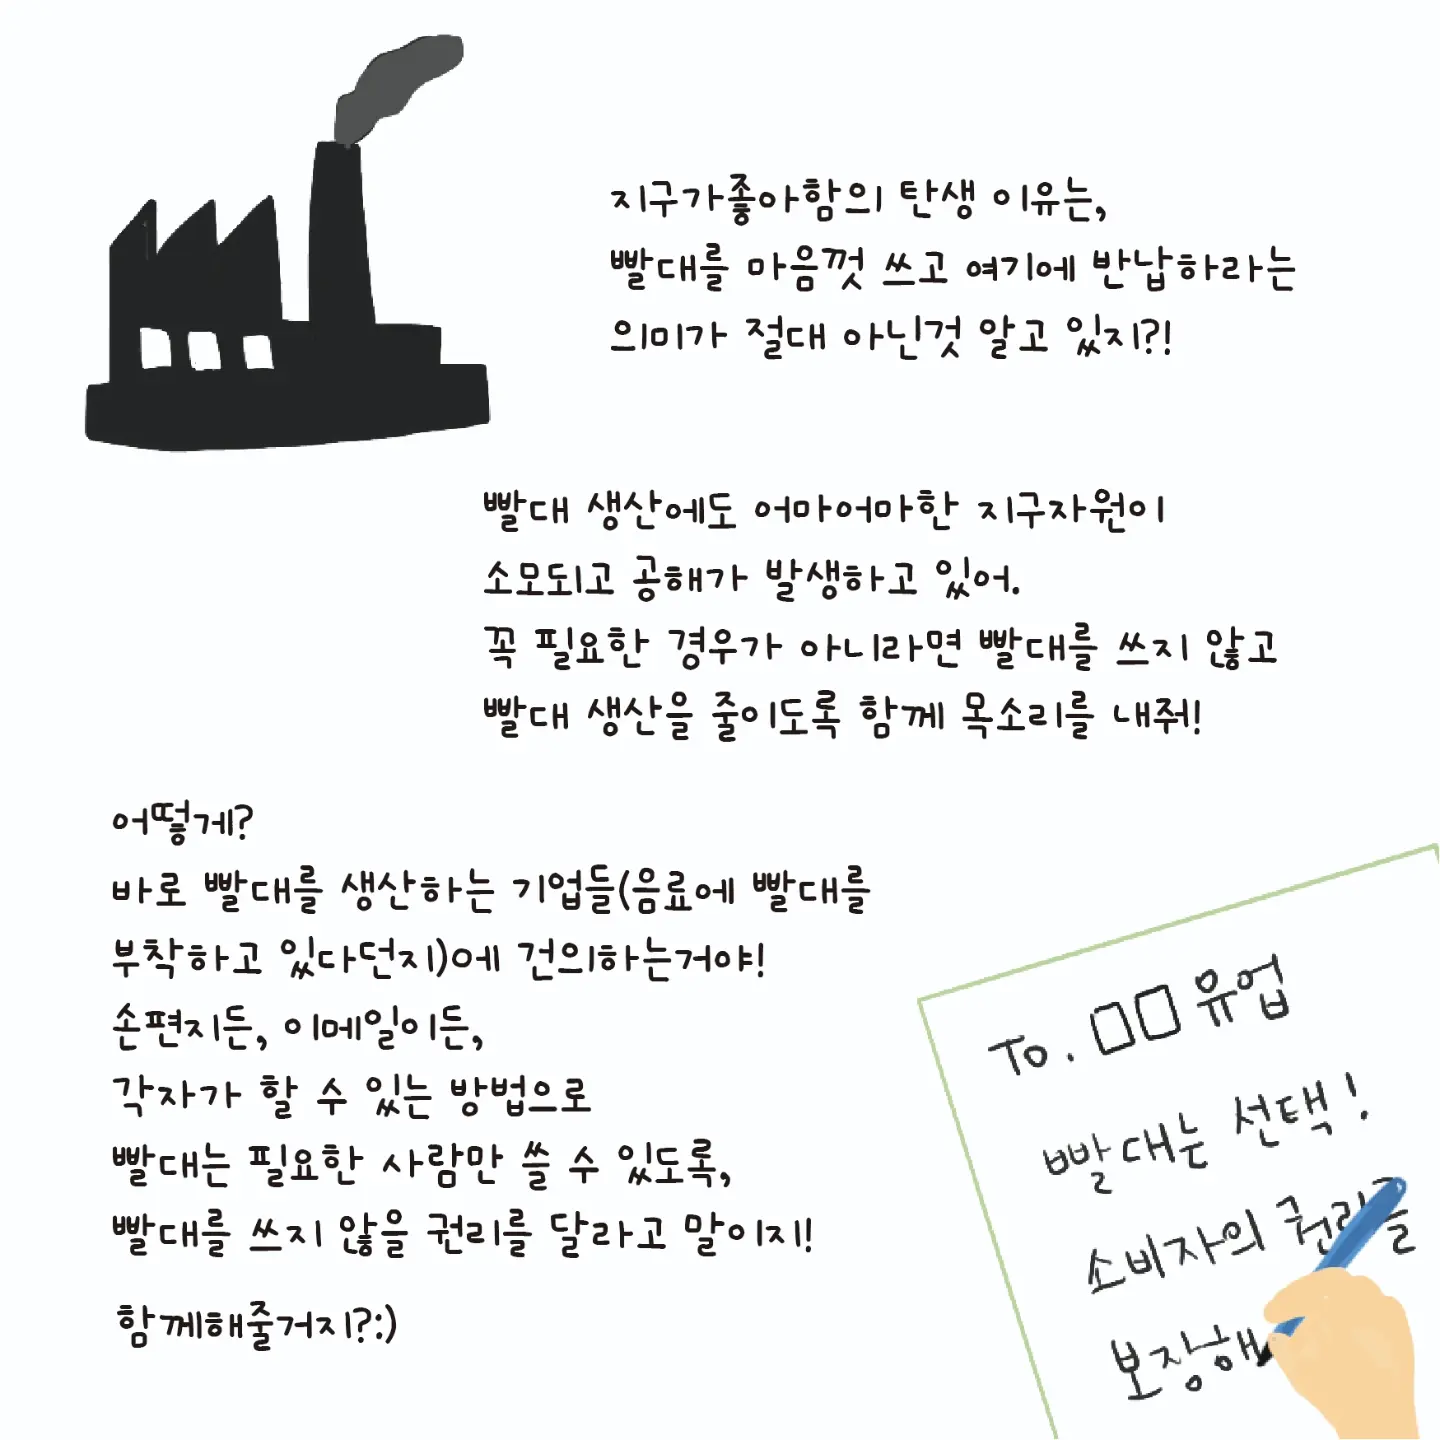 지구가좋아함의 탄생 이유는,
빨대를 마음껏 쓰고 여기에 반납하라는
의미가 절대 아닌것 알고 있지?!
빨대 생산에도 어마어마한 지구자원이
소모되고 공해가 발생하고 있어.
꼭 필요한 경우가 아니라면 빨대를 쓰지 않고
빨대 생산을 줄이도록 함께 목소리를 내줘!
어떻게?
바로 빨대를 생산하는 기업들(음료에 빨대를
부착하고 있다던지)에 건의하는거야!
손편지든, 이메일이든,
각자가 할 수 있는 방법으로
빨대는 필요한 사람만 쓸 수 있도록,
빨대를 쓰지 않을 권리를 달라고 말이지!
함께해줄거지?:)
To. □□ 유업
빨대는 선택!
소비자의 권리를
보장해